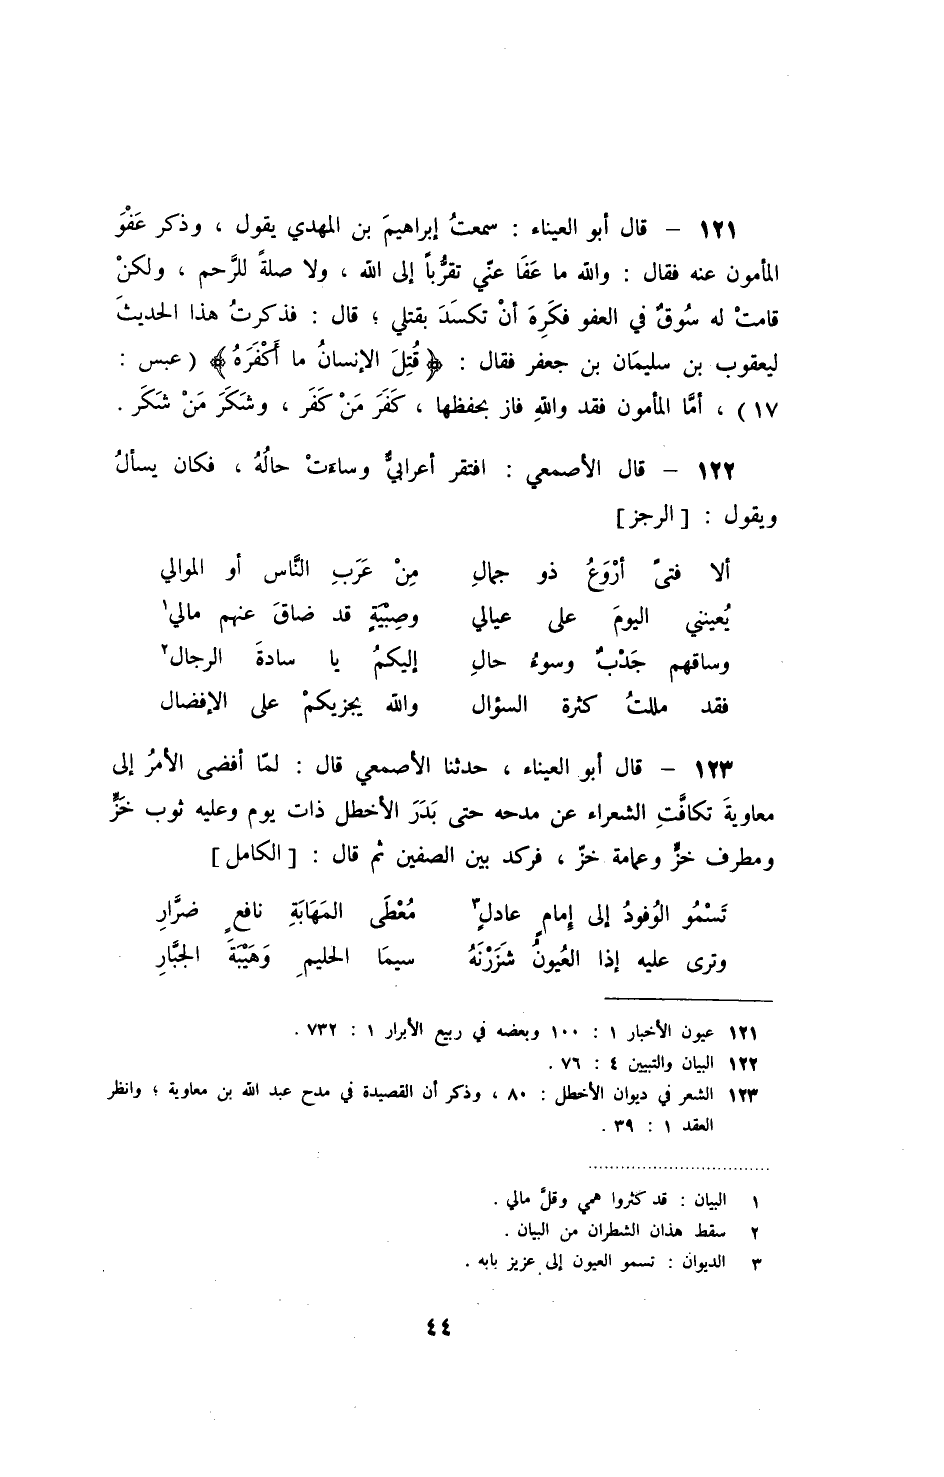 ١٢١ – قال أبو العيناء : سمعتُ إبراهيمَ بن المهدي يقول ، وذكر عَفْوَ
المأمون عنه فقال : والله ما عَفَا عنّي تقرُّباً إلى الله ، ولا صلةً للرَّحم ، ولكنْ
قامتْ له سُوقٌ في العفو فكَرِهَ أنْ تكسَدَ بقتلي ؛ قال : فذكرتُ هذا الحديثَ
ليعقوب بن سليمَان بن جعفر فقال : ﴿قُتِلَ الإنسانُ ما أكْفَرَهُ﴾ ( عبس :
١٧ ) ، أمَّا المأمون فقد واللهِ فاز بحفظها ، كَفَرَ مَنْ كفَر ، وشكَرَ مَنْ شكَر .
١٢٢ – قال الأصمعي : افتقر أعرابيٌّ وساءَتْ حالُهُ ، فكان يسألُ
ويقول : [ الرجز ]
ألا فتىً أرْوَعُ ذو جمالِ مِنْ عَرَبِ النَّاس أو الموالي
يُعينني اليومَ على عيالي وصِبْيَةٍ قد ضاقَ عنهم مالي١
وساقهم جَدْبٌ وسوءُ حالِ إليكمُ يا سادةَ الرجال٢
فقد مللتُ كثرة السؤال والله يجزيكمْ على الإفضال
١٢٣ – قال أبو العيناء ، حدثنا الأصمعي قال : لمّا أفضى الأمرُ إلى
معاويةَ تكافَّتِ الشعراء عن مدحه حتى بَدَرَ الأخطل ذات يوم وعليه ثوب خَزٍّ
ومطرف خزٍّ وعمامة خزّ ، فركد بين الصفين ثم قال : [ الكامل ]
تَسْمُو الوُفودُ إلى إمامٍ عادلٍ٣ مُعْطَى المَهَابَةِ نافعٍ ضرَّارِ
وترى عليه إذا العُيونُ شَزَرْنَهُ سيمَا الحليمِ وَهَيْبَةَ الجبَّارِ
١٢١ عيون الأخبار ١ : ١٠٠ وبعضه في ربيع الأبرار ١ : ٧٣٢ .
١٢٢ البيان والتبيين ٤ : ٧٦ .
١٢٣ الشعر في ديوان الأخطل : ٨٠ ، وذكر أن القصيدة في مدح عبد الله بن معاوية ؛ وانظر
العقد ١ : ٣٩ .
١ البيان : قد كثروا همي وقلَّ مالي .
٢ سقط هذان الشطران من البيان .
٣ الديوان : تسمو العيون إلى عزيز بابه .
٤٤